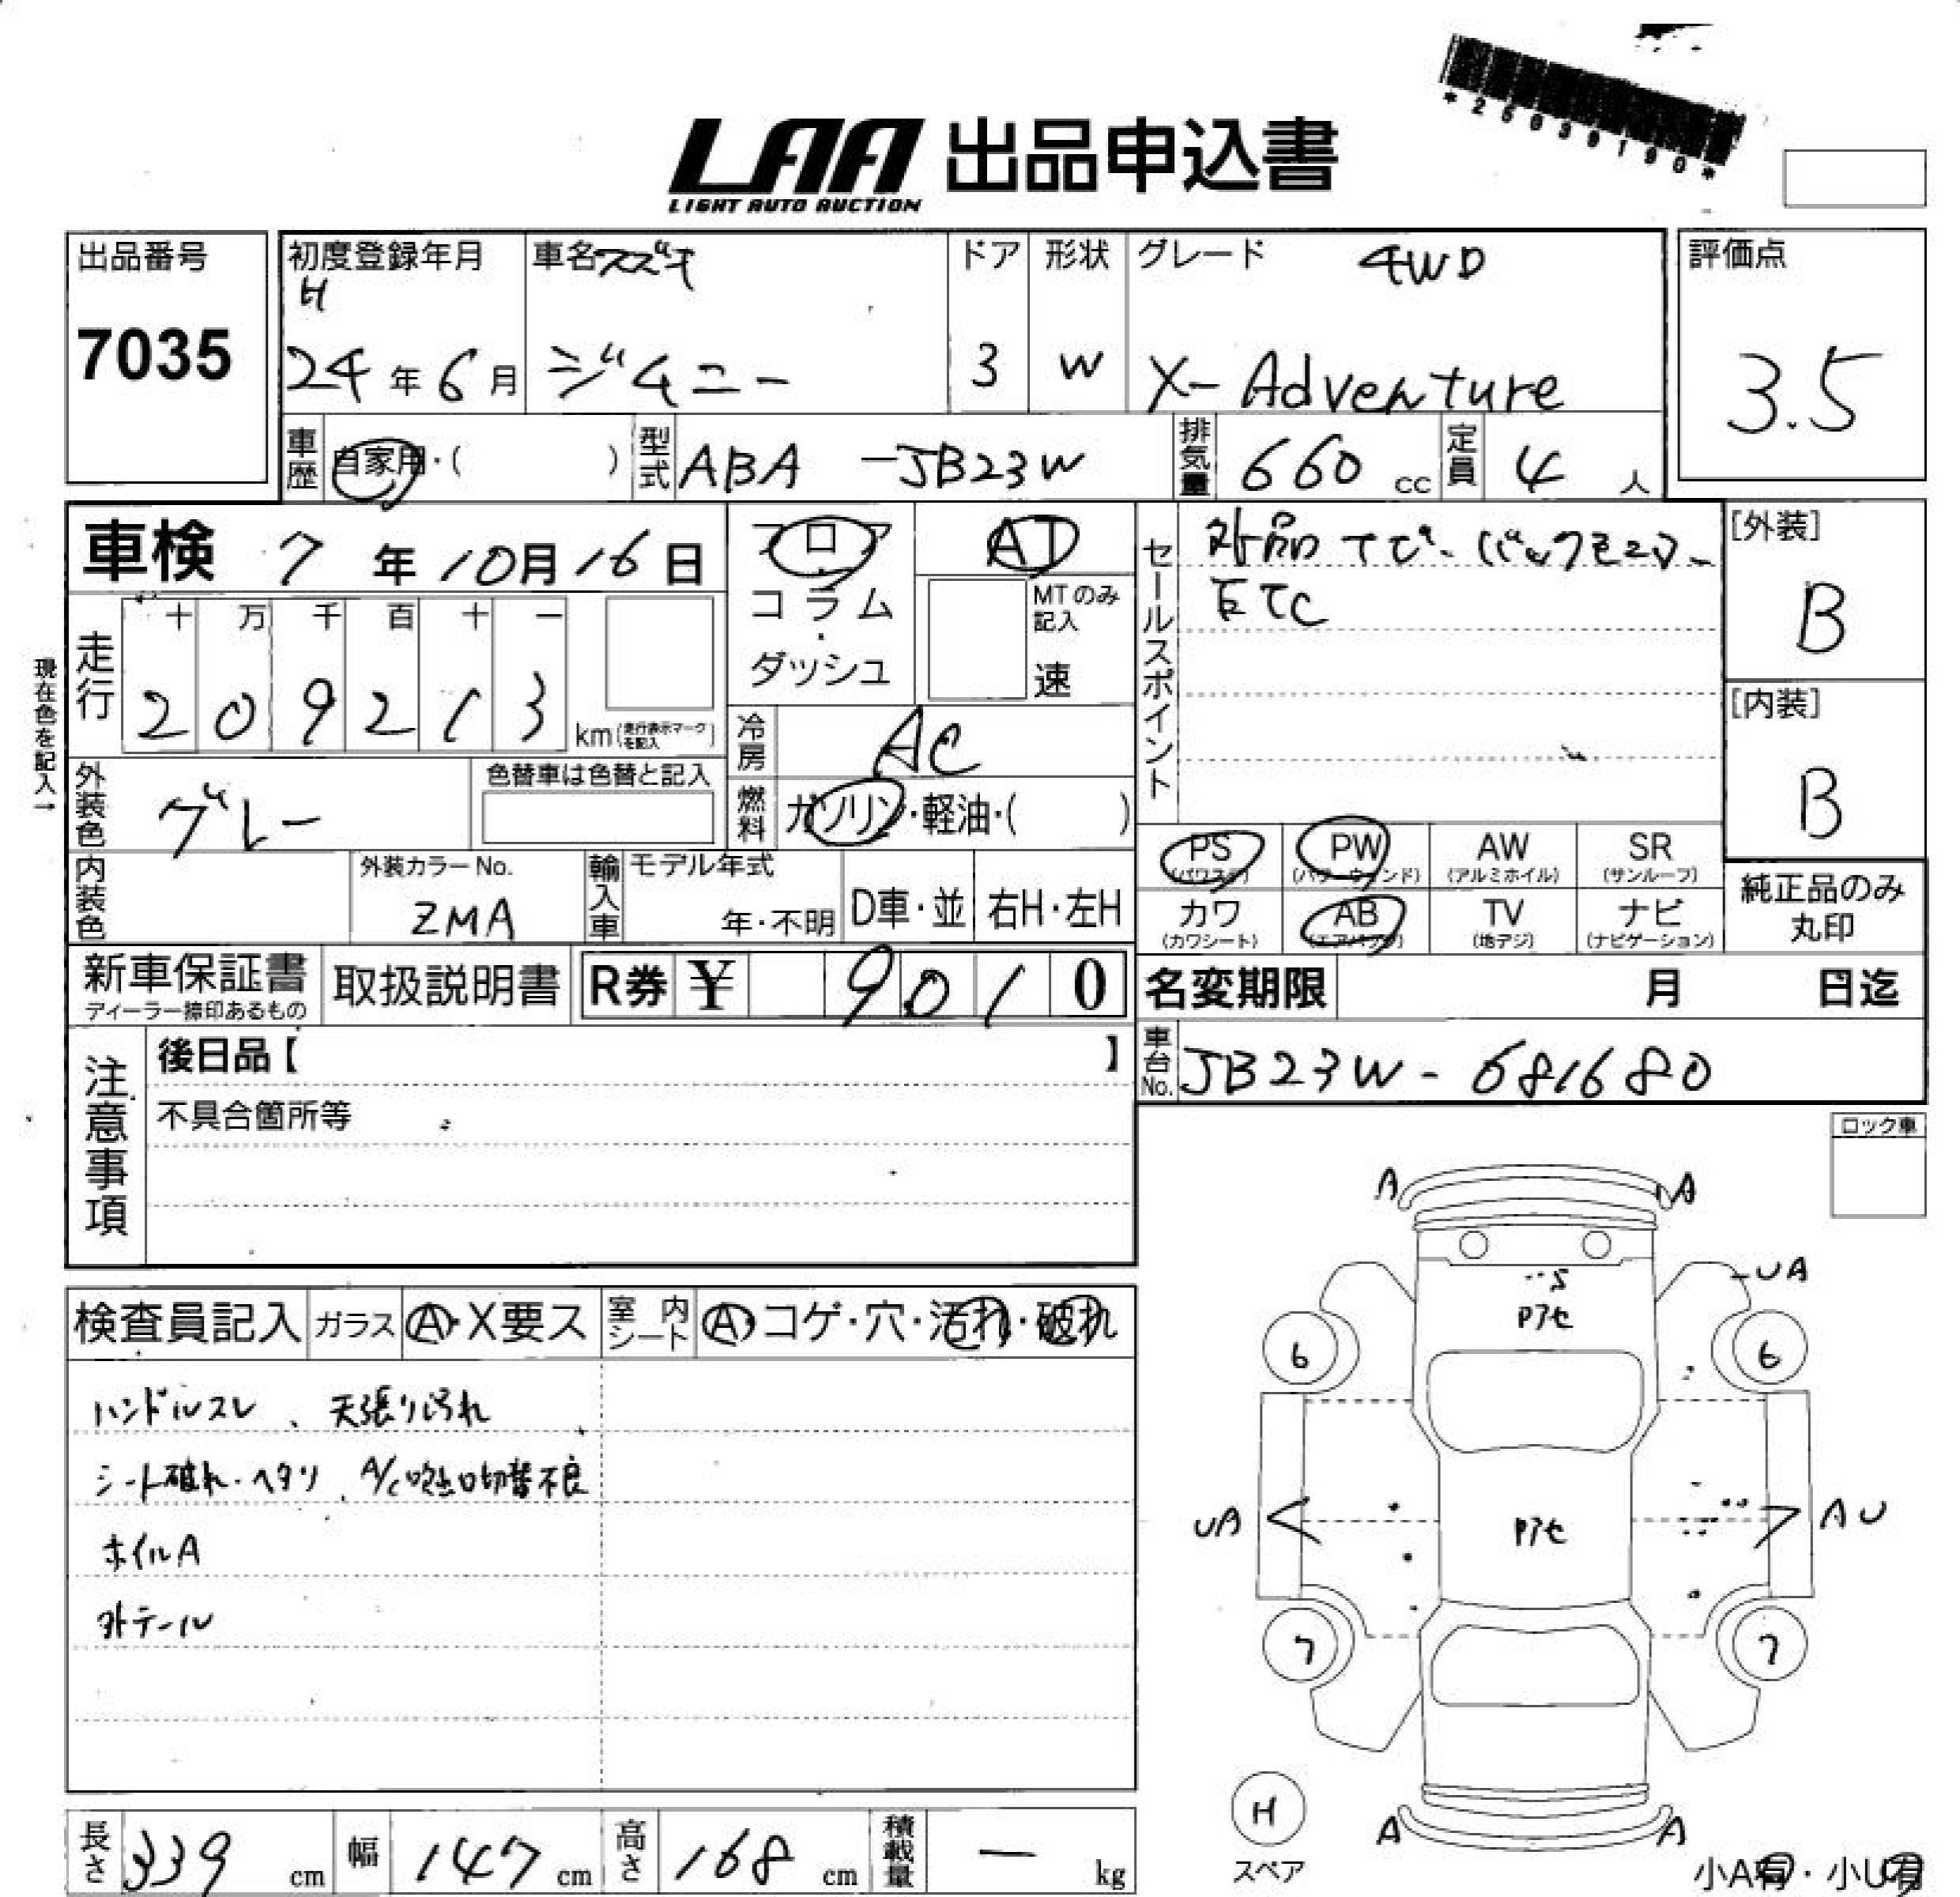 *25039190*
LAA 出品申込書
LIGHT AUTO AUCTION
出品番号
7035
初度登録年月
H
24年6月
車名 スズキ
ジムニー
ドア
3
形状
W
グレード 4WD
X-Adventure
評価点
3.5
車歴 自家用・( )
型式 ABA -JB23W
排気量 660 cc
定員 4 人
車検 7年10月16日
フロア
コラム
・
ダッシュ
AT
MTのみ
記入
速
セールスポイント
外品 ナビ・バックモニター
ETC
[外装]
B
[内装]
B
現在色を記入→
走行
十 万 千 百 十 一
2 0 9 2 1 3
km(走行表示マークを記入)
冷房 AC
外装色 グレー
色替車は色替と記入
燃料 ガソリン・軽油・( )
内装色
外装カラーNo.
ZMA
輸入車
モデル年式
年・不明
D車・並
右H・左H
PS (パワステ)
PW (パワーウィンド)
AW (アルミホイル)
SR (サンルーフ)
カワ (カワシート)
AB (エアバック)
TV (地デジ)
ナビ (ナビゲーション)
純正品のみ
丸印
新車保証書
ディーラー捺印あるもの
取扱説明書
R券 ¥ 9 0 1 0
名変期限 月 日迄
車台No. JB23W-681680
注意事項
後日品【 】
不具合箇所等
ロック車
検査員記入
ガラス
A・X要ス
室内シート
A・コゲ・穴・汚れ・破れ
ハンドルスレ、天張り汚れ
シート破れ・ヘタリ、A/C吹出口切替不良
ホイルA
外テール
A A
S
Pアセ
UA
6 6
UA
Pアセ
AU
7 7
H
スペア
A A
小A有・小U有
長さ 339 cm
幅 147 cm
高さ 168 cm
積載量 ー kg